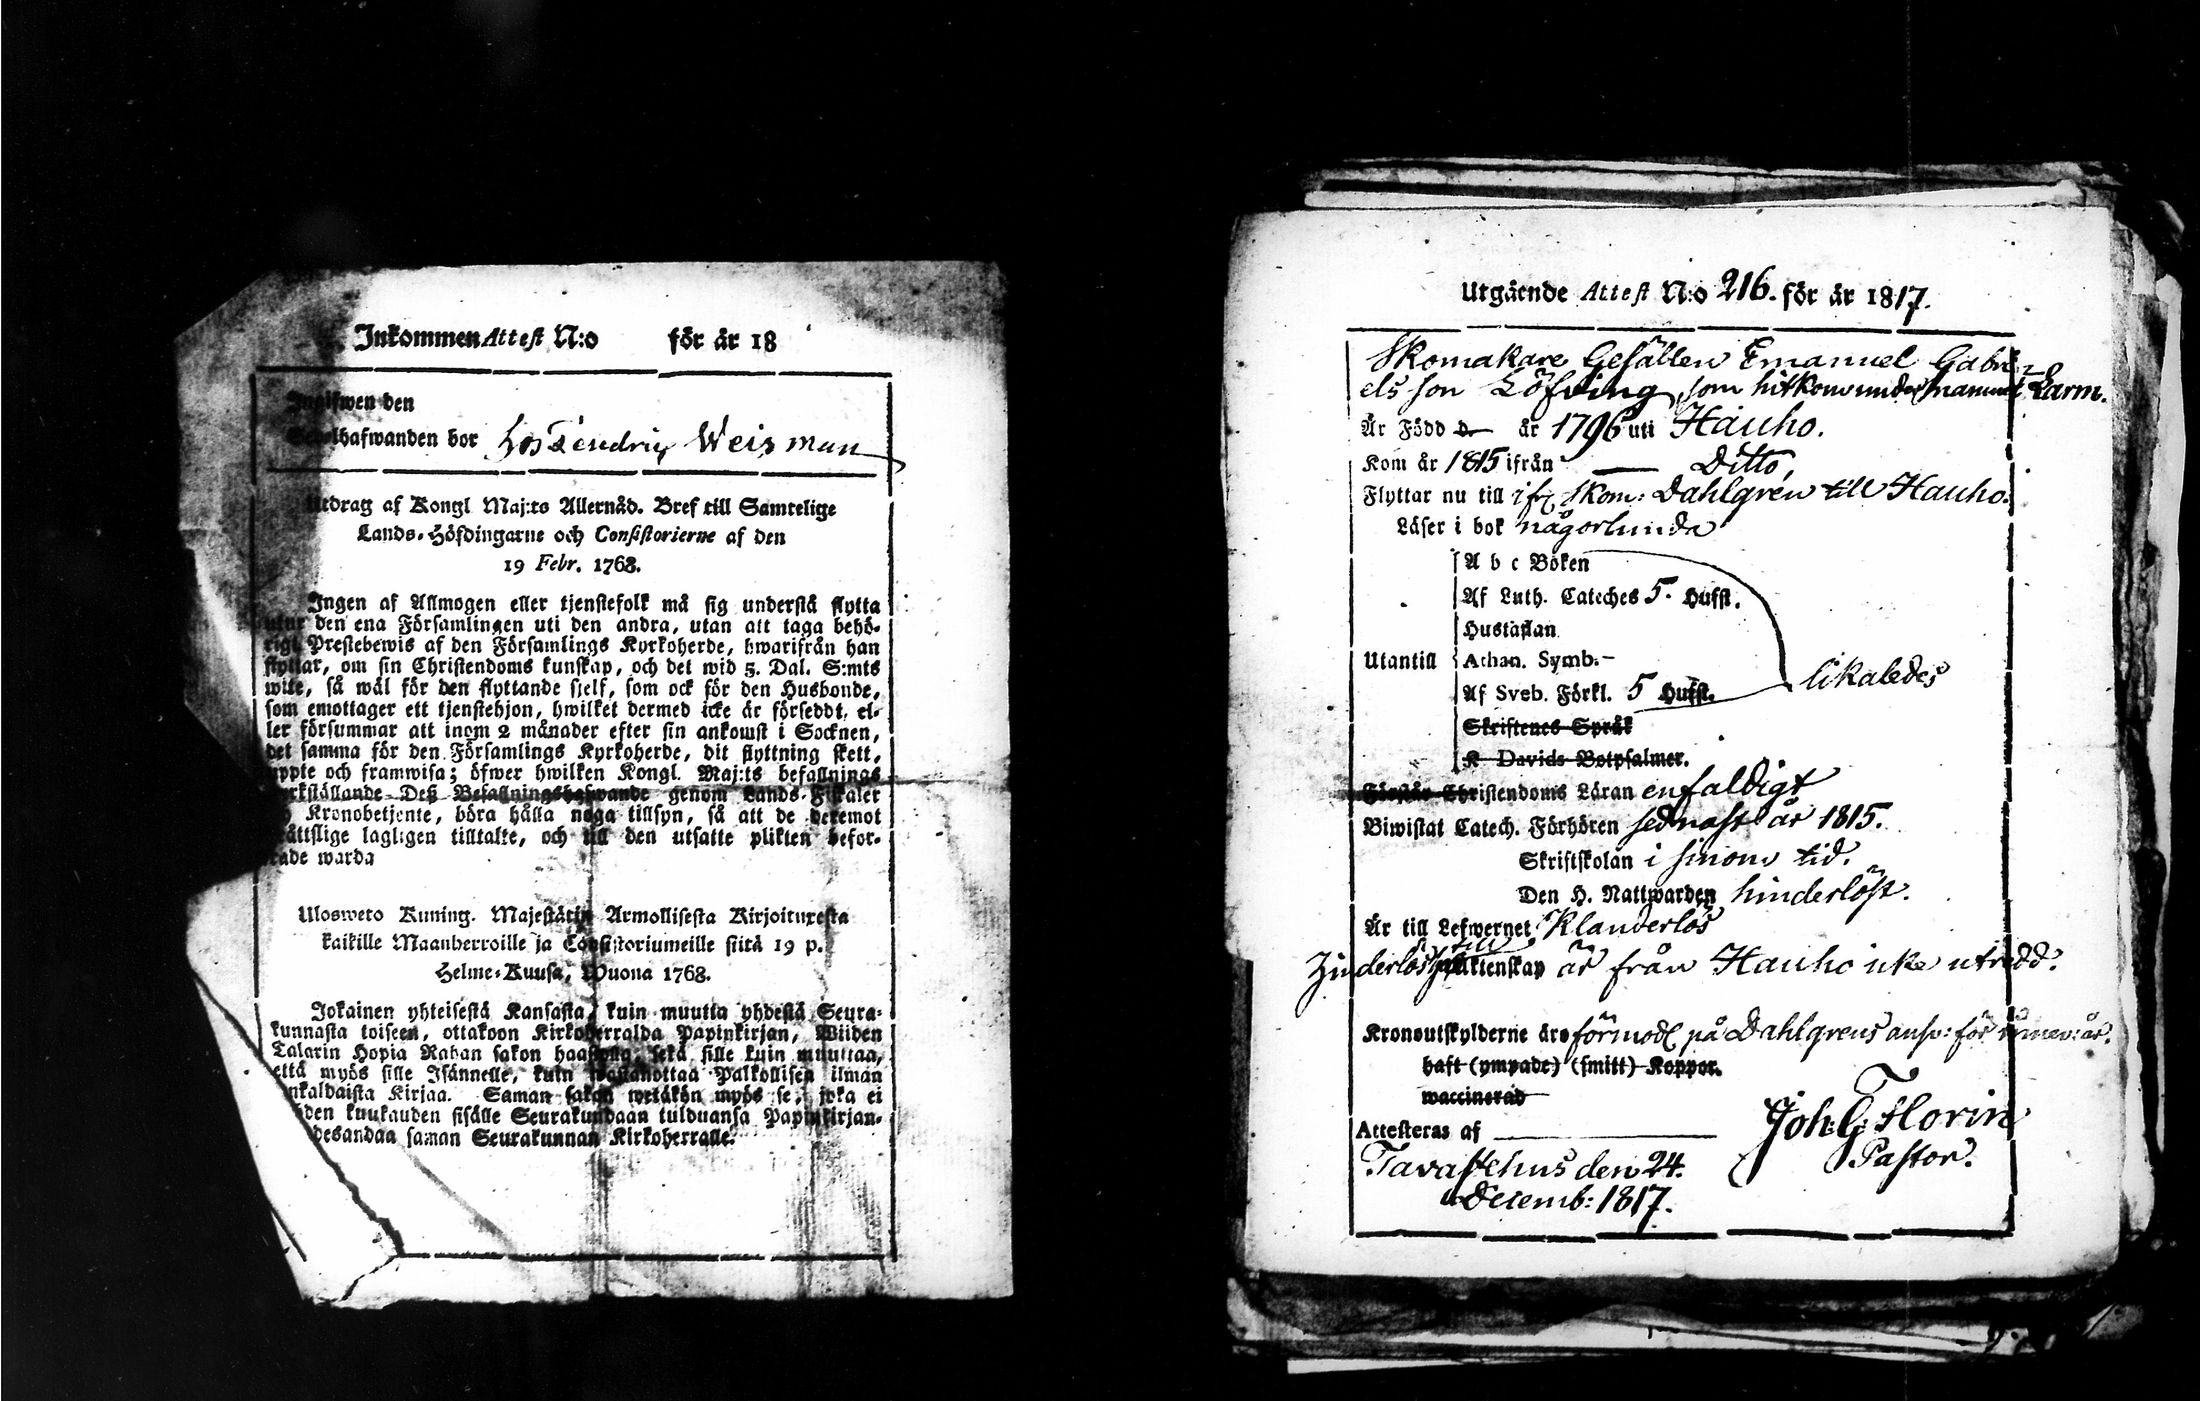 Inkommen Attest N:o för år 18
Ingifwen den
Sedelhafwanden bor hos Hendrix Weisman
Utdrag af Kongl. Maj:ts Allernåd. Bref till Samtelige
Lands-Höfdingarne och Consistorierne af den
19 Febr. 1768.
Ingen af Allmogen eller tjenstefolk må sig understå flytta
utur den ena Församlingen uti den andra, utan att taga behö-
rigt Prestebewis af den Församlings Kyrkoherde, hwarifrån han
flyttar, om sin Christendoms kunskap, och det wid 5. Dal. S:mts
wite, så wäl för den flyttande sjelf, som ock för den Husbonde,
som emottager ett tjenstehjon, hwilket dermed icke är försedt, el-
ler försummar att inom 2 månader efter sin ankomst i Socknen,
det samma för den Församlings Kyrkoherde, dit flyttning skett,
uppte och framwisa; öfwer hwilken Kongl. Maj:ts befallnings
werkställande Deß Befallningshafwande genom Lands-Fiskaler
Kronobetjente, böra hålla noga tillsyn, så att de deremot
lagligen tilltalte, och till den utsatte plikten befor-
rade warda
Ulosweto Kuning. Majestätin Armollisesta Kirjoituxesta
kaikille Maanherroille ja Consistoriumeille siitä 19 p.
Helme-Kuusa, Wuona 1768.
Jokainen yhteisestä Kansasta, kuin muutta yhdestä Seura-
kunnasta toiseen, ottakoon Kirkoherralda Papinkirjan, Wiiden
Talarin Hopia Rahan sakon haastolla, sekä sille kuin muuttaa,
että myös sille Isännelle, kuin wastanottaa Palkollisen ilman
nkaldaista Kirjaa. Saman sakon wetäkön myös se, joka ei
hden kuukauden sisälle Seurakundaan tulduansa Papinkirjan-
desandaa saman Seurakunnan Kirkoherralle.
Utgående Attest N:o 216. för år 1817.
Skomakare Gesällen Emanuel Gabri-
els son Löfving, som hitkom under namnet Larm.
Är Född D. — år 1796 uti Hauho.
Kom år 1815 ifrån — Ditto,
Flyttar nu till ifr. Skom: Dahlgren till Hauho.
Läser i bok någorlunda
A b c Boken
Af Luth. Cateches 5. Hufst.
Hustaflan
Utantill Athan. Symb. –
Af Sveb. Förkl. 5 Hufst. likaledes
Skriftenes Språk
K Davids Botpsalmer.
Förstår Christendoms Läran enfaldigt
Biwistat Catech. Förhören sednast år 1815.
Skriftskolan i sinom tid.
Den H. Nattwarden hinderlöst.
Är till Lefwernet klanderlös
till äktenskap är från Hauho icke utredd.
Kronoutskylderne äro förmodl på Dahlgrens ansv: för innev: år.
haft (ympade) (smitt) Koppor.
waccinerad
Attesteras af Joh: G: Florin
Tavastehus den 24. Pastor.
Decemb: 1817.